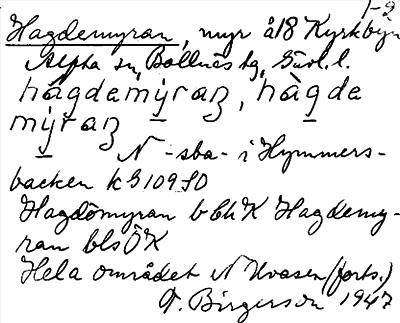 1-2
Hagdemyran, myr å18 Kyrkbyn
Alfta sn, Bollnäs tg, Gävl. l.
hàgdemy̱raɳ, hàgde
my̱raɳ
N -sba- i Hymmers-
backen k G109 SO
Hagdömyran b bhK Hagdemy-
ran bls ÖK
Hela området N Kvasen (forts.)
F. Birgerson 1947